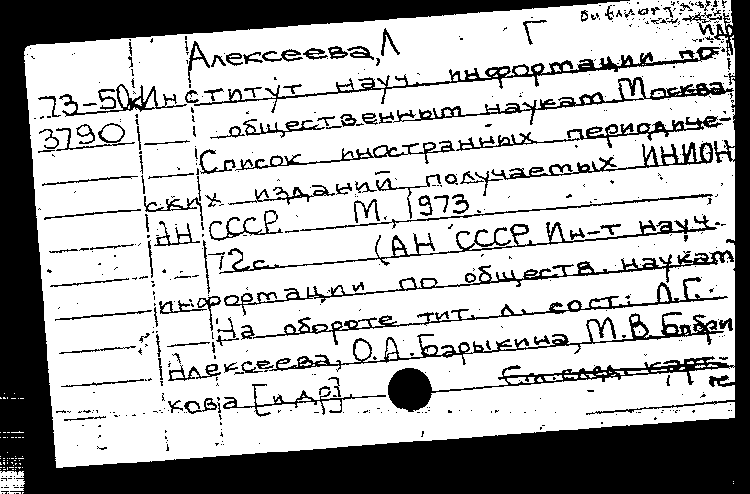 Алексеева, Л Г
73-50 Институт науч. информации по
3790 общественным наукам Москва
Список иностранных периодиче-
ских изданий, получаемых ИНИОН
АН СССР. М., 1973.
72с. (АН СССР. Ин-т науч.
информации по обществ. наукам
На обороте тит. л. сост.: Л.Г.
Алексеева, О.А. Барыкина, М.В. Бабри
кова [и др].
См. след. карт.